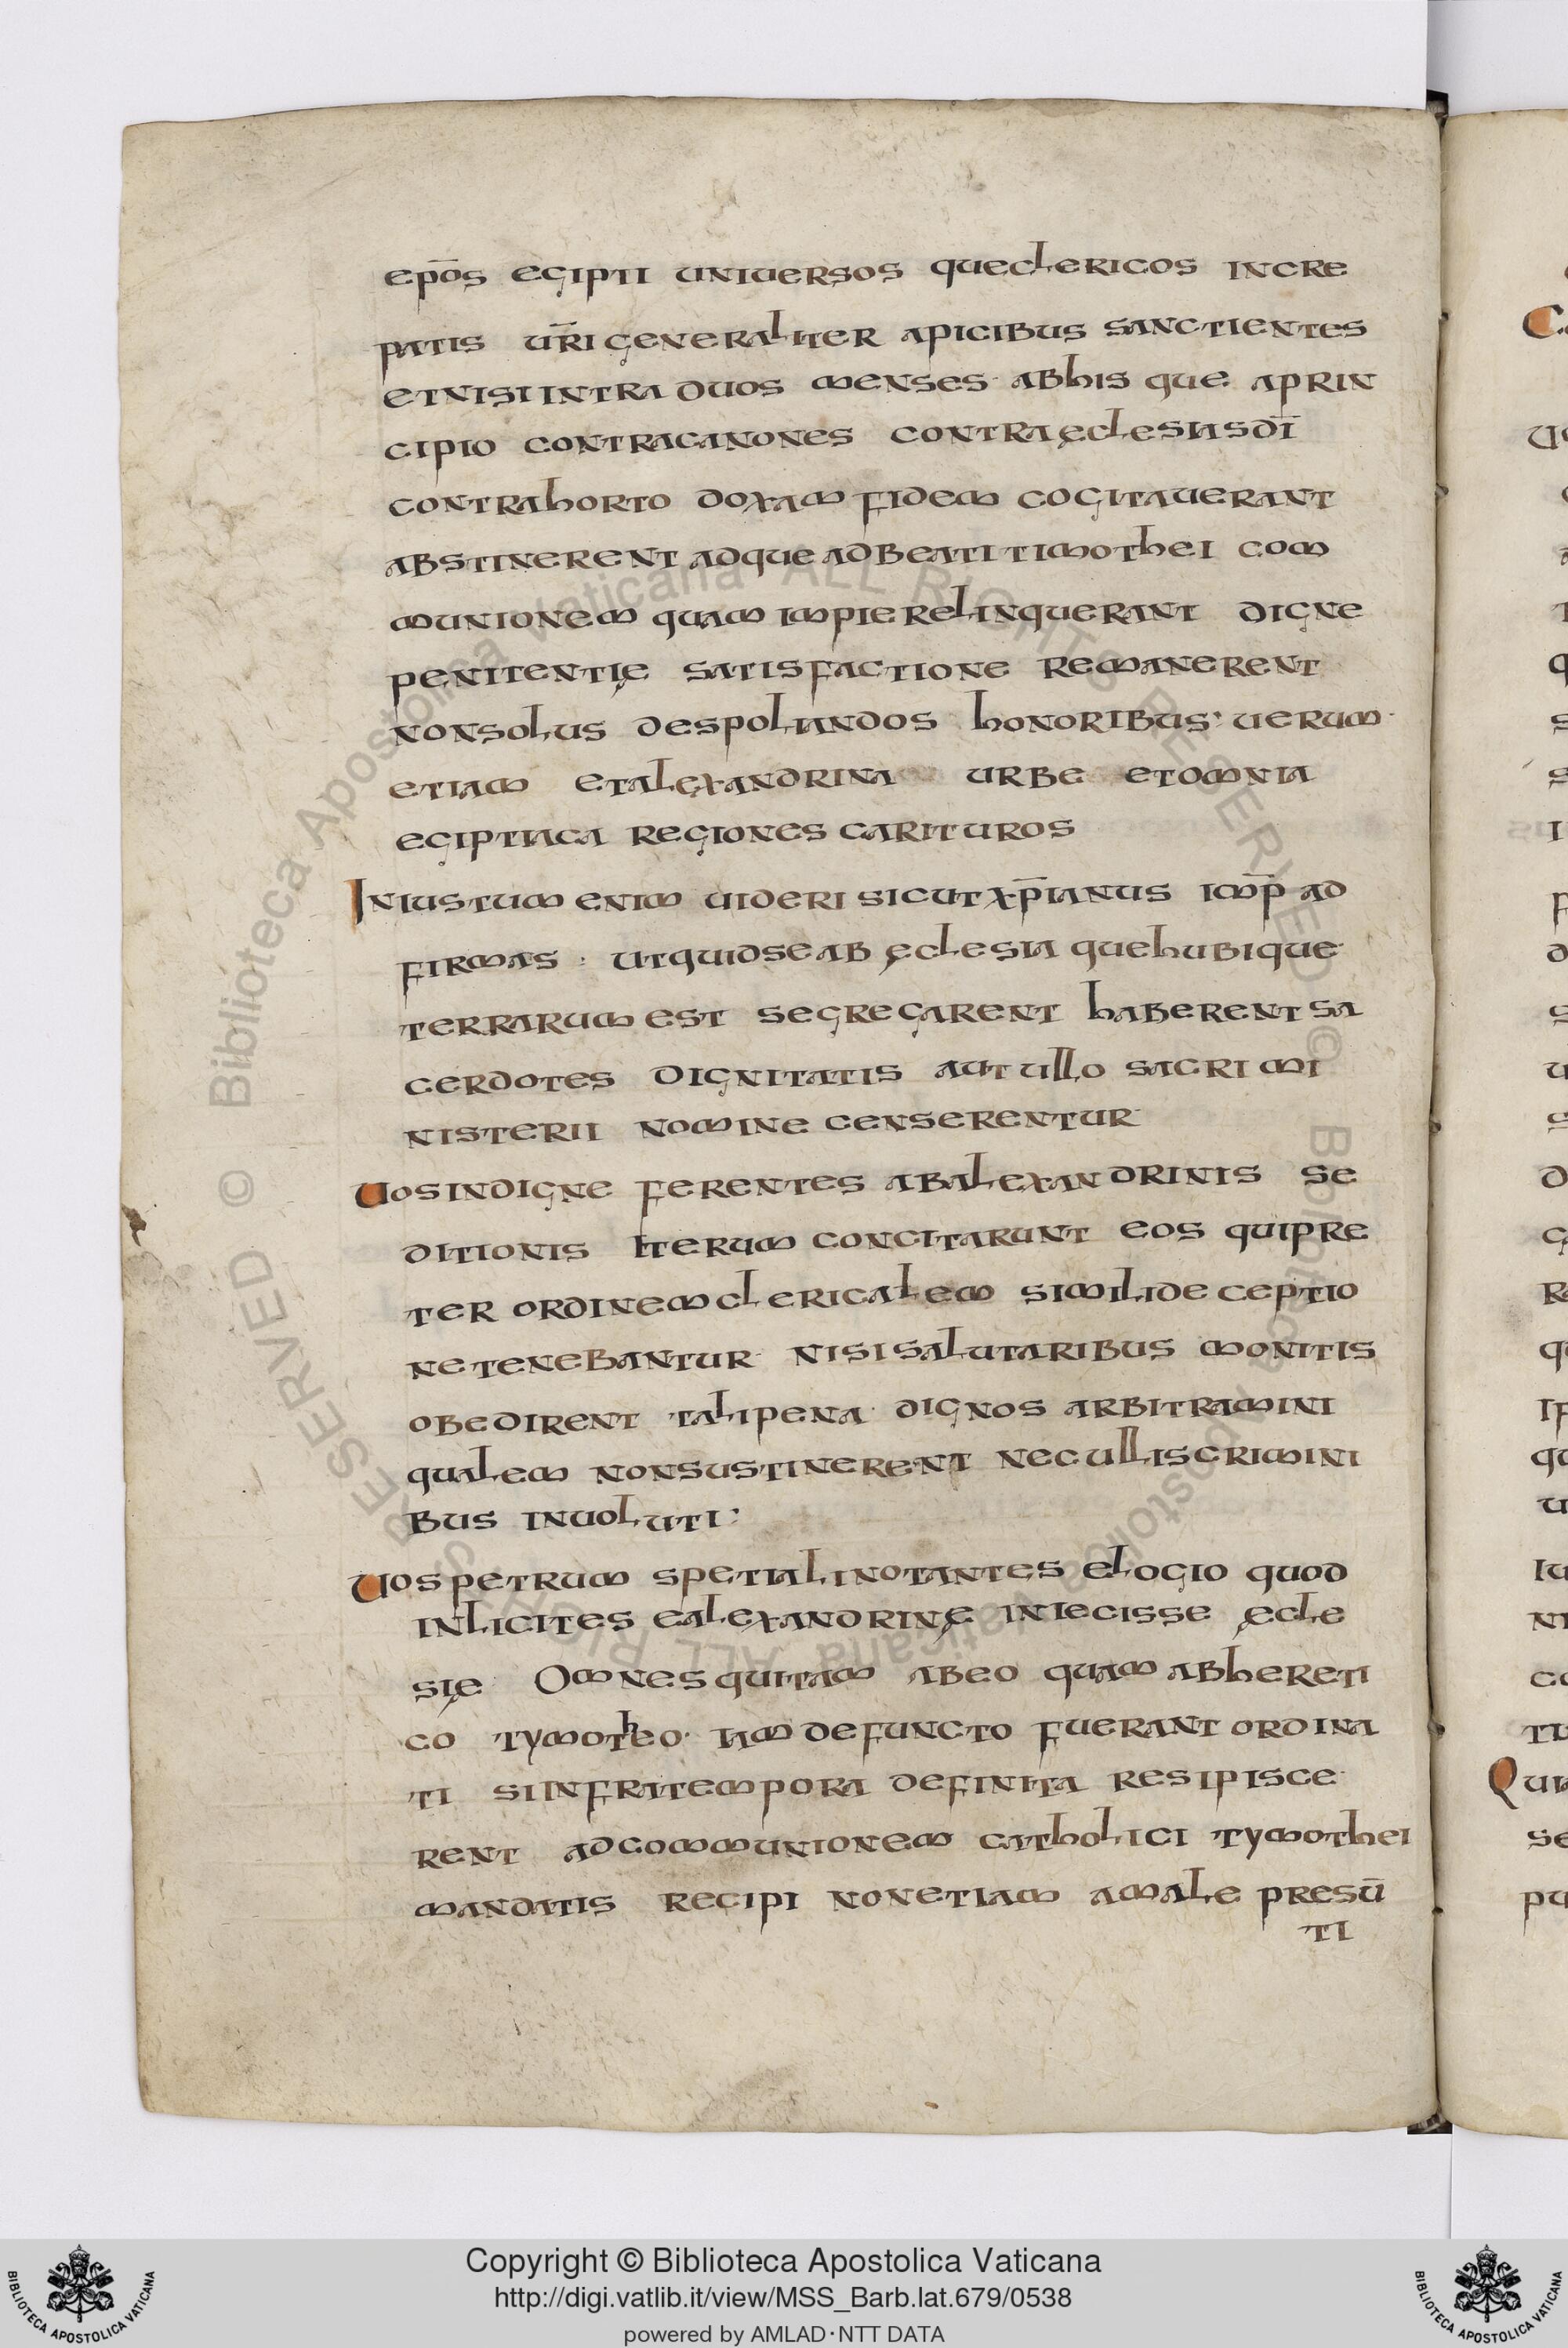 ep̄os egipti uniuersos queclericos incre
patis ur̄i generaliter apicibus sanctientes
etnisi intra duos menses abhis que aprin
cipio contracanones contraęclesiasdī
contrahorto doxam fidem cogitauerant
abstinerent adque adbeati timothei com
munionem quam impie relinquerant digne
penitentię satisfactione remanerent
nonsolus despoliandos honoribus: uerum
etiam etalexandrina urbe etomnia
egiptiaca regiones carituros
Iniustum enim uideri sicut xp̄ianus imp̄ ad
firmas: utquidseab ęclesia quehubique
terrarum est segregarent haberent sa
cerdotes dignitatis aut ullo sacri mi
nisterii nomine censerentur
Uosindigne ferentes abalexandrinis se
ditionis iterum concitarunt eos quipre
ter ordinemclericalem similide ceptio
netenebantur nisisalutaribus monitis
obedirent talipena dignos arbitramini
qualem nonsustinerent neculliscrimini
bus inuoluti:
Uospetrum spetialinotantes elogio quod
inlicites ealexandrinę iniecisse ęcle
się Omnesquitam abeo quam abhereti
co tymotheo· iam defuncto fuerant ordina
ti siinfratempora definita resipisce
rent adcommunionem catholici tymothei
mandatis recipi nonetiam amale presū
ti
Copyright © Biblioteca Apostolica Vaticana
http://digi.vatlib.it/view/MSS_Barb.lat.679/0538
powered by AMLAD·NTT DATA